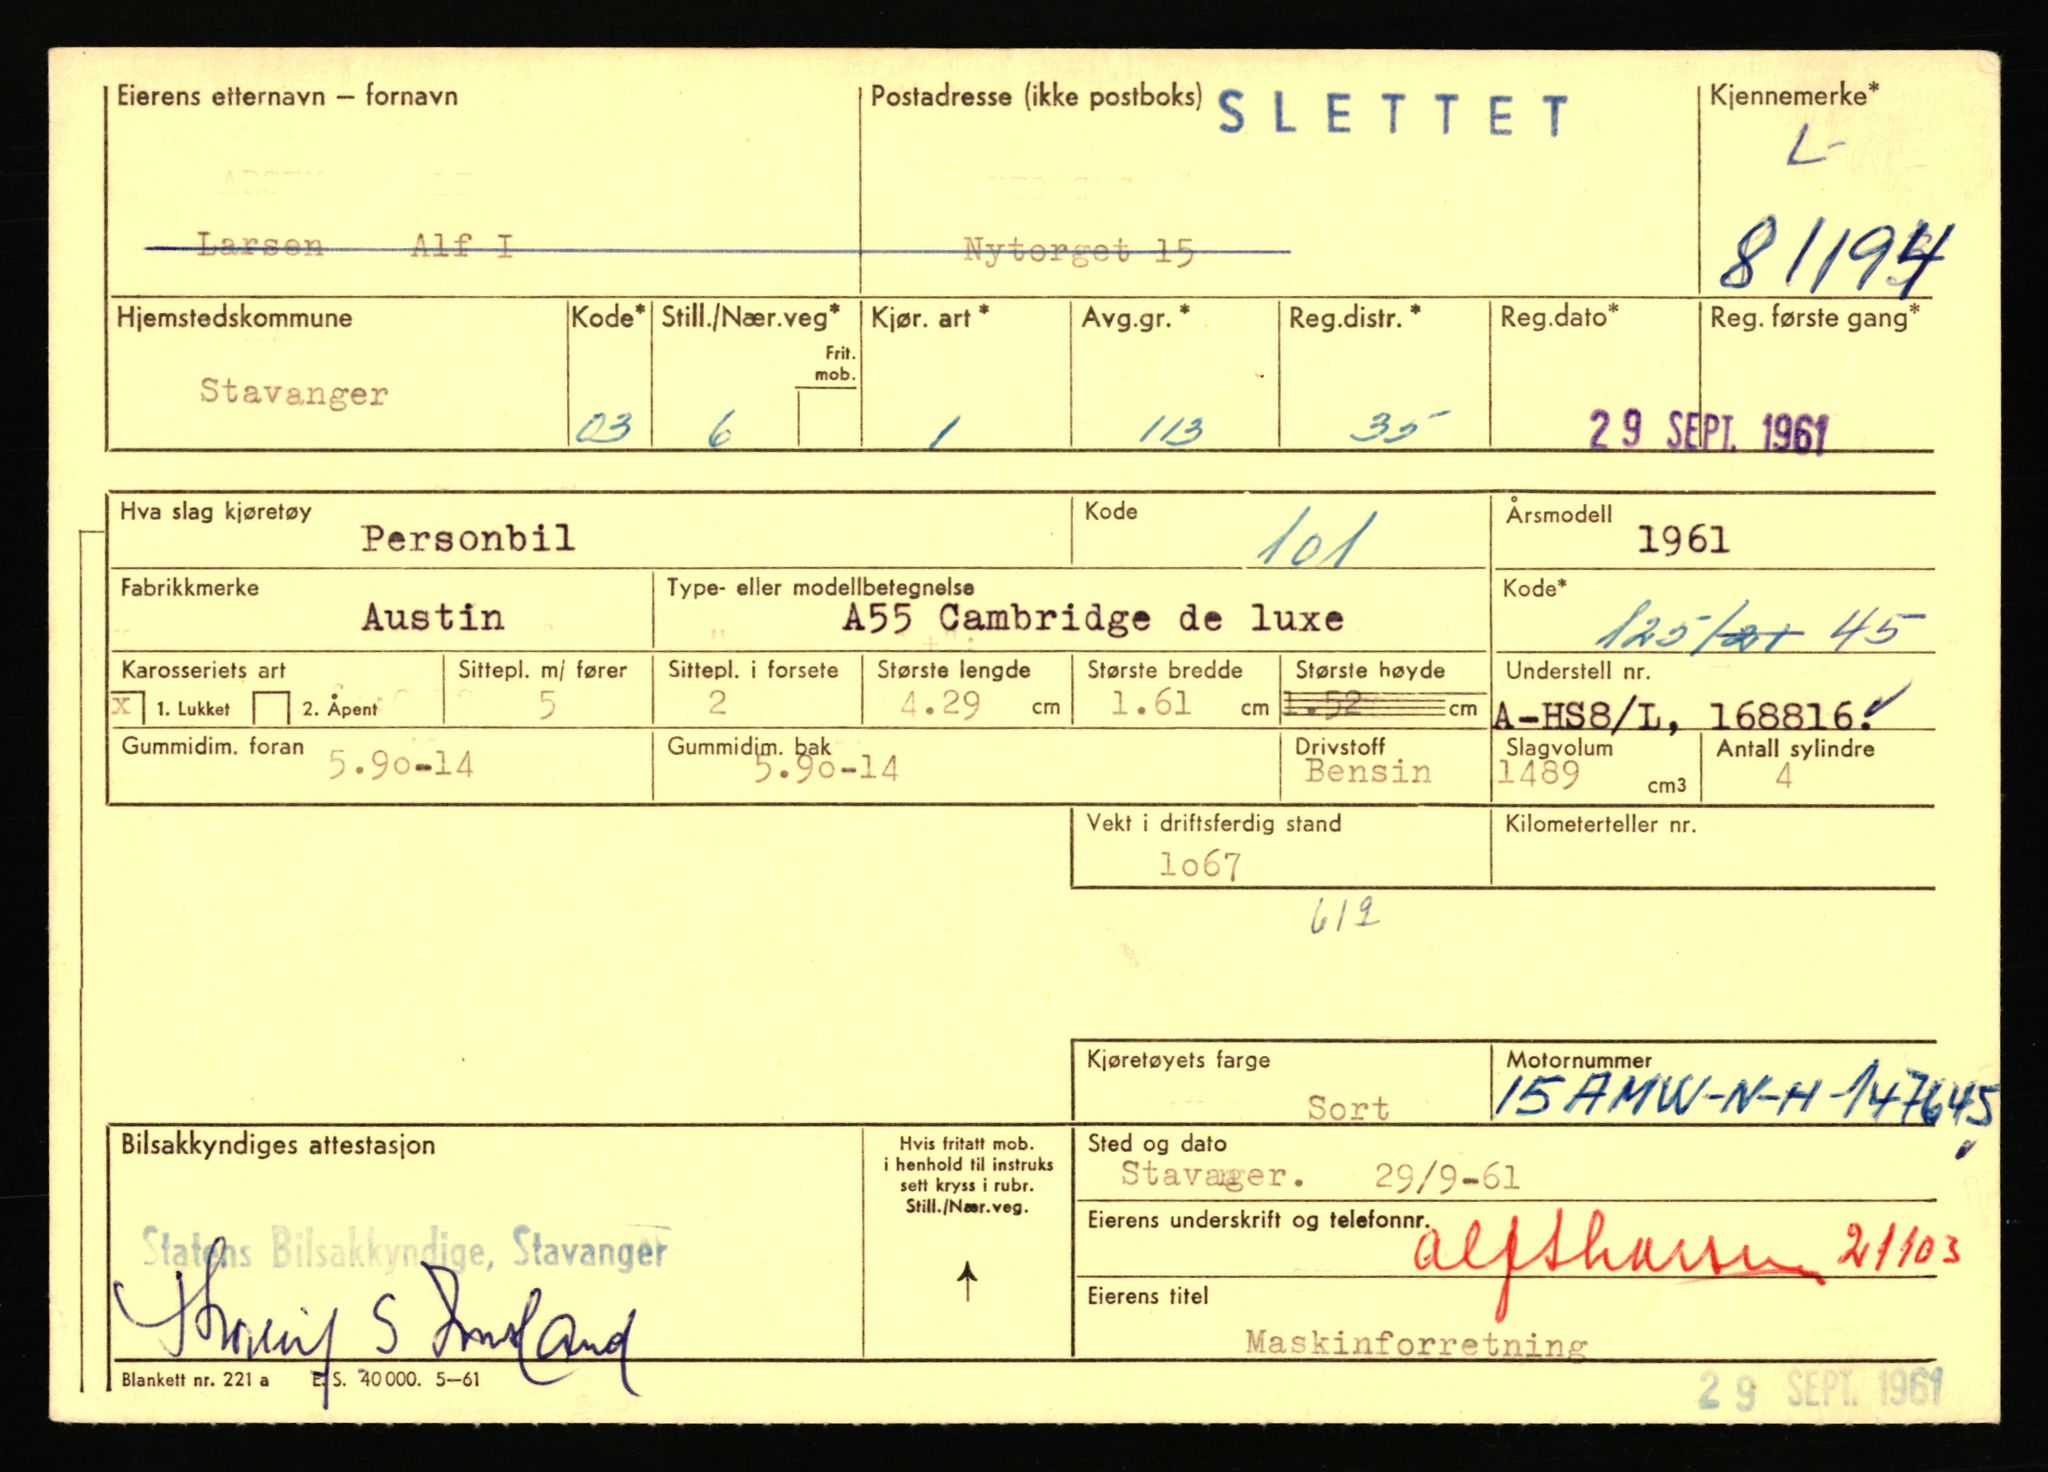 Eierens etternavn – fornavn
Postadresse (ikke postboks) SLETTET
Kjennemerke*
L-
Larsen Alf I
Nytorget 15
81194
Hjemstedskommune
Kode*
Still./Nær.veg*
Frit.
mob.
Kjør. art*
Avg.gr.*
Reg.distr.*
Reg.dato*
Reg. første gang*
Stavanger
03
6
1
113
35
29 SEPT. 1961
Hva slag kjøretøy
Personbil
Kode
101
Årsmodell
1961
Fabrikkmerke
Austin
Type- eller modellbetegnelse
A55 Cambridge de luxe
Kode*
125/21 45
Karosseriets art
x 1. Lukket 2. Åpent
Sittepl. m/ fører
5
Sittepl. i forsete
2
Største lengde
4.29 cm
Største bredde
1.61 cm
Største høyde
1.52 cm
Understell nr.
A-HS8/L, 168816.
Gummidim. foran
5.90-14
Gummidim. bak
5.90-14
Drivstoff
Bensin
Slagvolum
1489 cm3
Antall sylindre
4
Vekt i driftsferdig stand
1o67
Kilometerteller nr.
612
Kjøretøyets farge
Sort
Motornummer
15AMW-N-H-147645
Bilsakkyndiges attestasjon
Statens Bilsakkyndige, Stavanger
Hvis fritatt mob.
i henhold til instruks
sett kryss i rubr.
Still./Nær.veg.
Sted og dato
Stavanger. 29/9-61
Eierens underskrift og telefonnr.
21103
Eierens titel
Maskinforretning
Blankett nr. 221 a E. S. 40 000. 5–61
29 SEPT. 1961